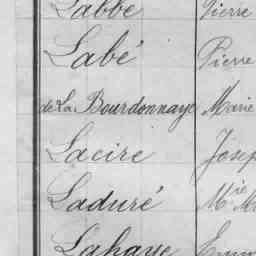 Labbé Pierre
Labé Pierre
de La Bourdonnaye Marie
Lacire
Laduré Mie
Lahaye